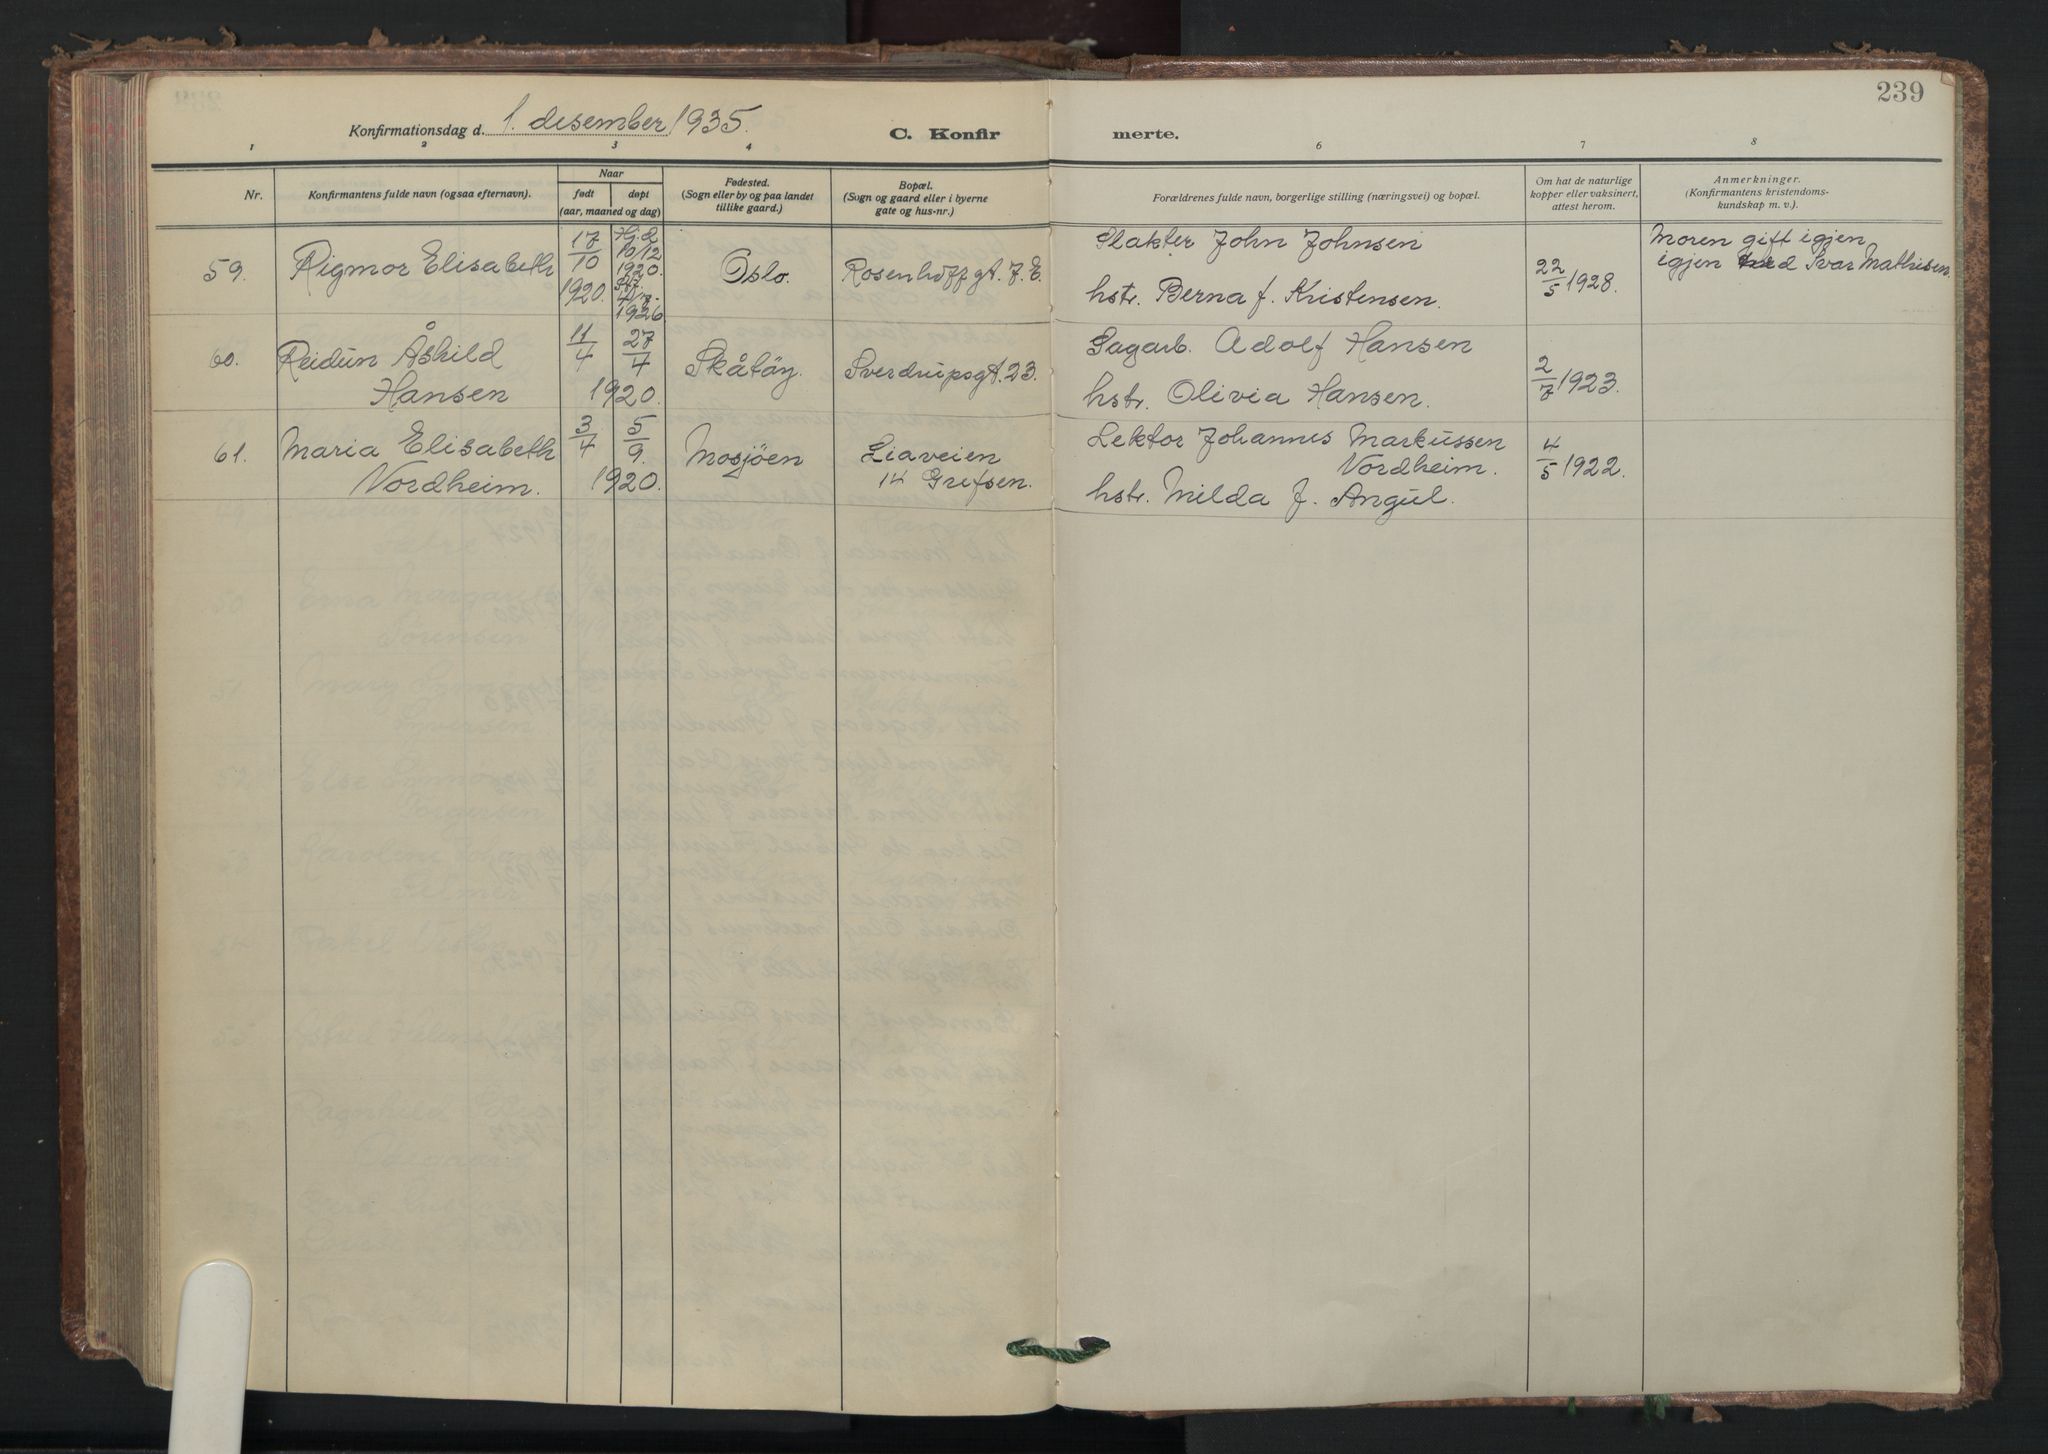 239
Konfirmationsdag d. 1. desember 1935.
C. Konfir
merte.
1 2 3 4 6 7 8
Nr.
Konfirmantens fulde navn (ogsaa efternavn).
Naar
født døpt
(aar, maaned og dag)
Fødested.
(Sogn eller by og paa landet
tillike gaard.)
Bopæl.
(Sogn og gaard eller i byerne
gate og hus-nr.)
Forældrenes fulde navn, borgerlige stilling (næringsvei) og bopæl.
Om hat de naturlige
kopper eller vaksinert,
attest herom.
Anmerkninger.
(Konfirmantens kristendoms-
kundskap m. v.).
59. Rigmor Elisabeth
17/10 1920.
Hj.d. 10/12 1920.
1926
Oslo.
Rosenhoffgt. 7. E.
Slakter John Johnsen
hstr. Berna f. Kristensen.
22/5 1928.
Moren gift igjen
igjen med Ivar Mathisen.
60. Reidun Åshild
Hansen
11/4 27/4
1920.
Skåtöy.
Sverdrupsgt. 23.
Sagarb. Adolf Hansen
hstr. Olivia Hansen.
2/7 1923.
61. Maria Elisabeth
Nordheim.
3/4 5/9.
1920.
Mosjöen
Liaveien
14 Grefsen.
Lektor Johannes Markussen
Nordheim.
hstr. Milda f. Angul.
4/5 1922.